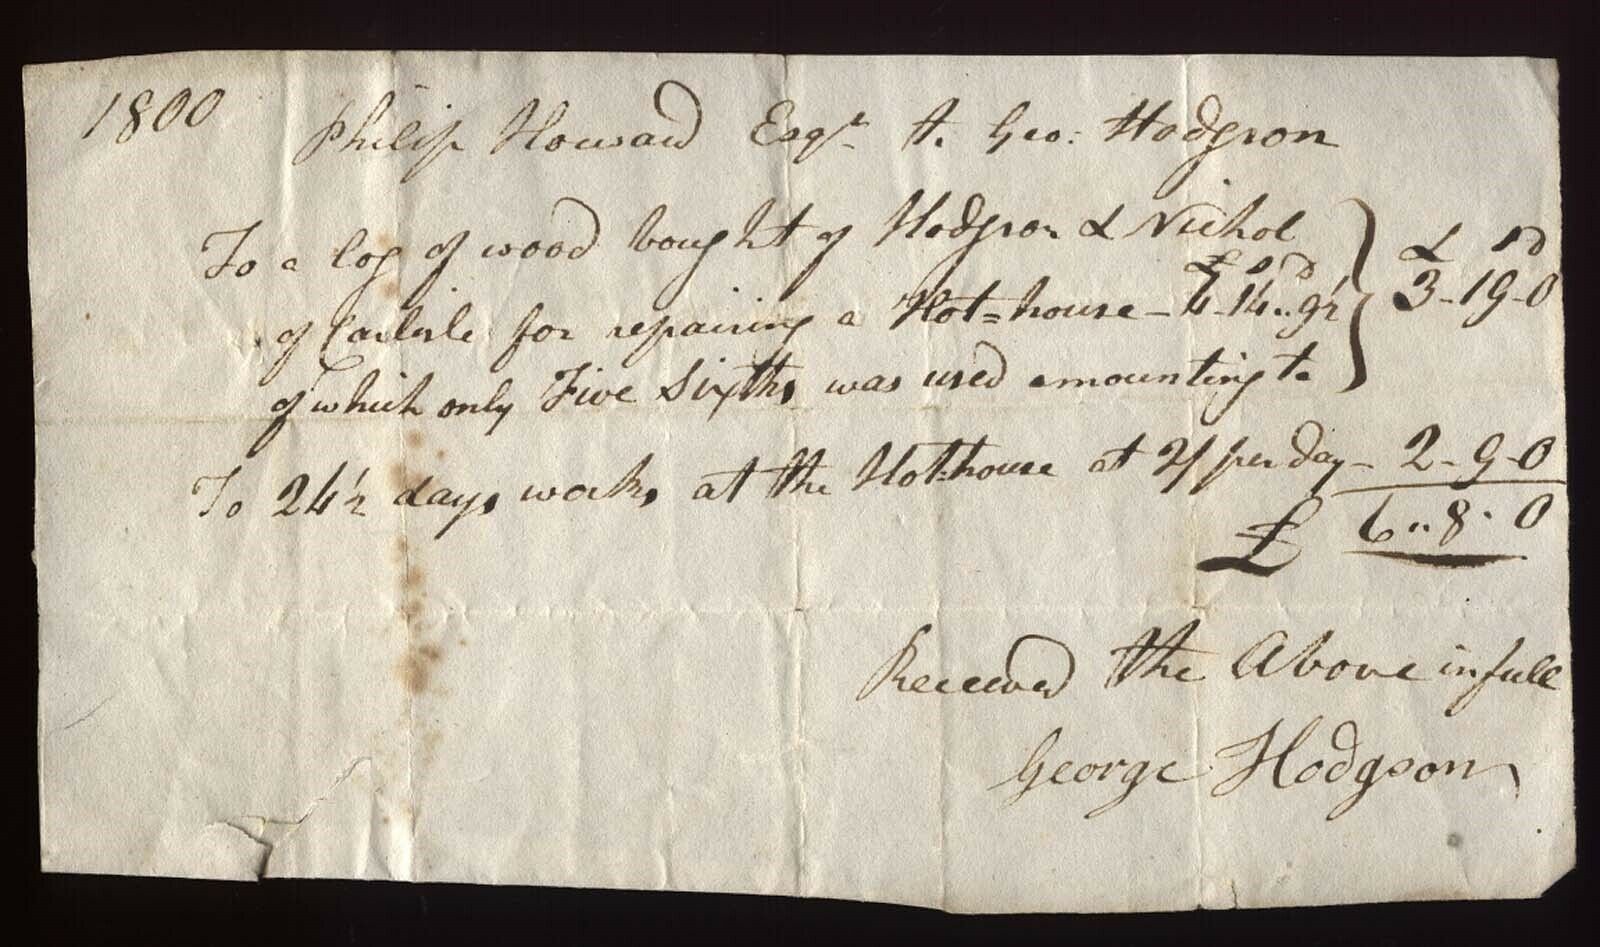 1800
Philip Howard Esqr. to Geo: Hodgson
To a log of wood bought of Hodgson & Nichol
£ s d
of Carlisle for repairing a Hot=house - 4-14..9½
of which only Five Sixths was used amounting to
£ s d
3-19-0
To 24½ days works at the Hot-house at 2/ per day - 2-9-0
£ 6..8.0
Received the Above in full
George Hodgson